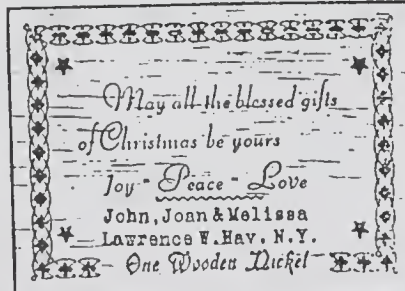 May all the blessed gifts
of Christmas be yours
Joy - Peace - Love
John, Joan & Melissa
Lawrence W. Hav. N.Y.
One Wooden Nickel